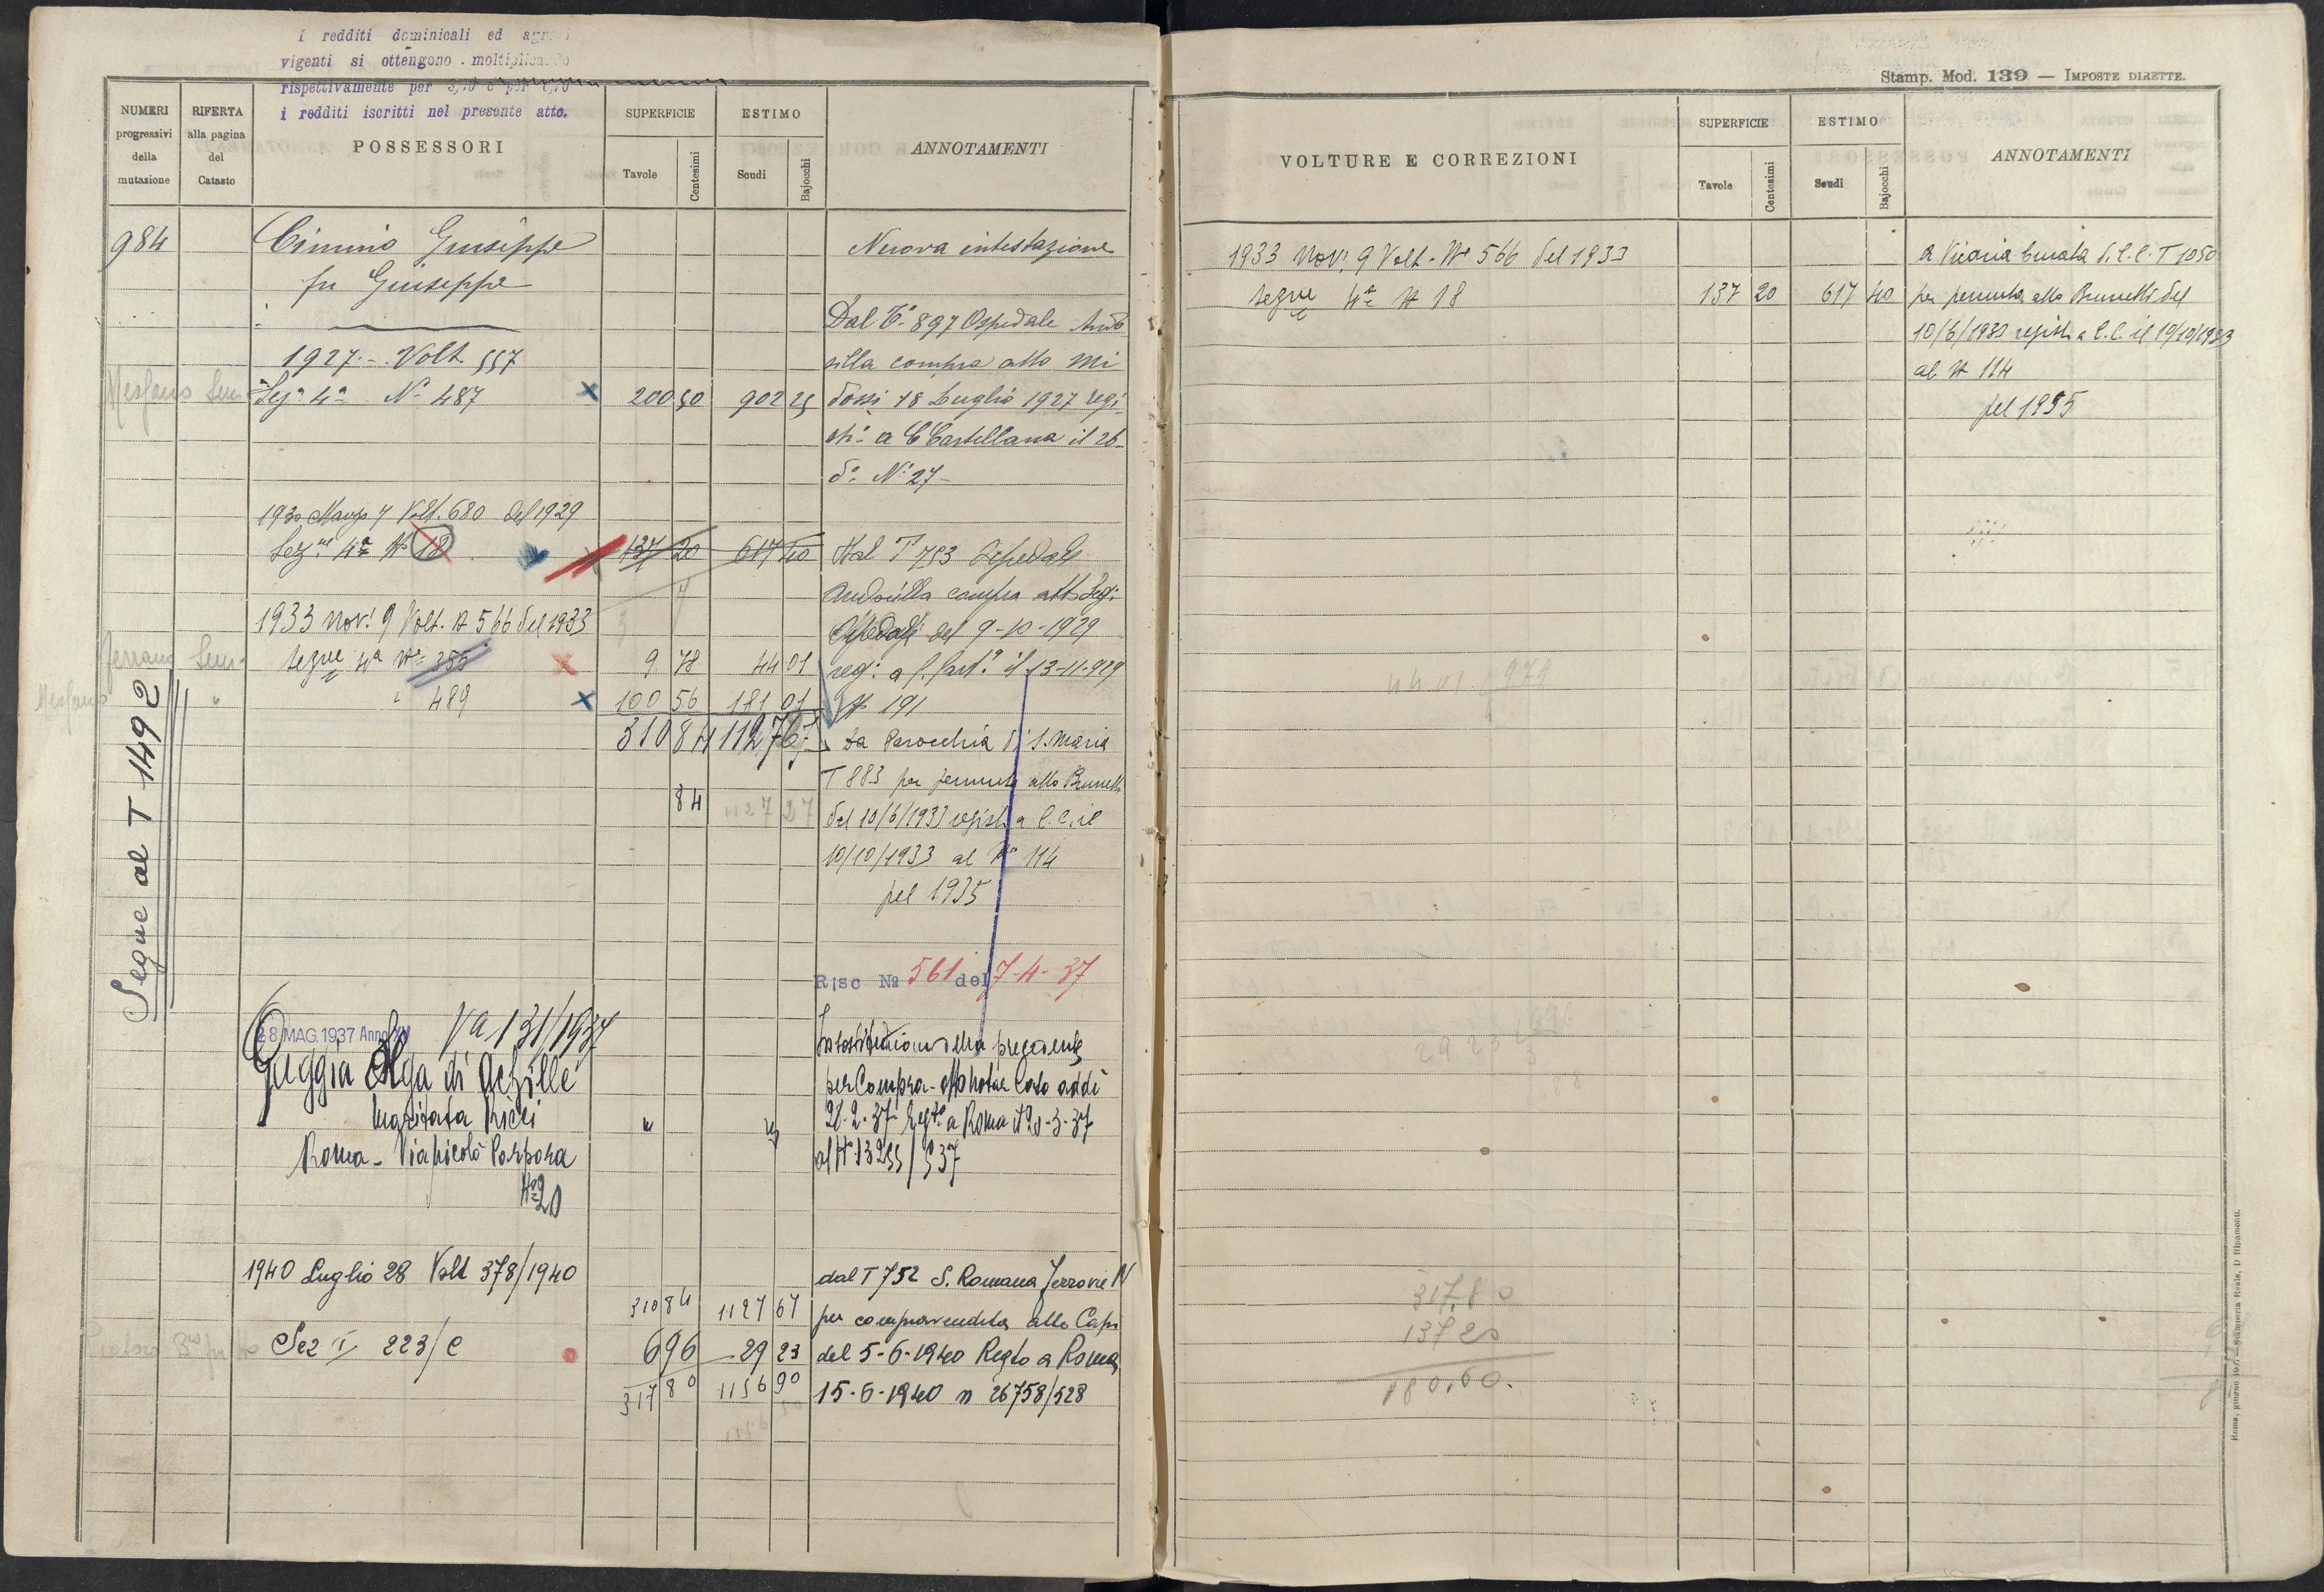 I redditi dominicali ed
vigenti si ottengono moltiplicando
rispettivamente per
i redditi iscritti nel presente atto.
NUMERI progressivi della mutazione
RIFERTA alla pagina del Catasto
POSSESSORI
SUPERFICIE
Tavole Centesimi
ESTIMO
Scudi Bajocchi
ANNOTAMENTI
984 Cimino Giuseppe Nuova intestazione
fu Giuseppe
Dal T° 897 Ospedale Ando
1927 - Volt 557 silla compra atto Mi
Sezn 4a N. 487 200 50 902 25 dossi 18 Luglio 1927 regi
str. a C Castellana il 26
d° N° 27 -
1930 Maggo 7 Volt. 680 del 1929
Sezne 4a N° 18 137 20 617 40 Dal T 753 Ospedale
Andosilla compra atto Seg:
1933 Nov. 9 Volt. N 566 del 1933 Ospedale del 9-10-1929
segue 4a N° 355 9 78 44 01 reg: a C. Cast.a il 13-11-929
" " 489 100 56 181 01 N 191
310 84 1127 67 Da Parocchia di S. Maria
T 883 per permuta atto Brunelli
84 1127 27 del 10/6/1933 registr a C.C. il
10/10/1933 al N° 114
pel 1935
Segue al T 1492
Risc No 561 del 7-4-37
28 MAG. 1937 Anno XV Va 131/1937
Guggia Olga di Achille per Compra - atto notar
maritata Ricci 28-2-37 Regto a Roma il 20-3-37
Roma - Via Nicolò Porpora al N° 13255/537
N° 20
1940 Luglio 28 Volt 378/1940 dal T 752 S. Romana Ferrovie N
310 84 1127 67 per compravendita atto Capi
Sez I 223/C 6 96 29 23 del 5-6-1940 Regto a Roma
317 80 1156 90 15-6-1940 n 26758/528
Stamp. Mod. 139 — IMPOSTE DIRETTE.
VOLTURE E CORREZIONI
SUPERFICIE
Tavole Centesimi
ESTIMO
Scudi Bajocchi
ANNOTAMENTI
1933 Nov. 9 Volt. N° 566 del 1933 A Vicaria Curata d. C.C. T 1050
segue 4a N 18 137 20 617 40 per permuta atto Brunelli del
10/6/1933 registr a C.C. il 19/10/1933
al N 114
pel 1935
44 01 979
29 23 696
317,80
137 20
180,60.